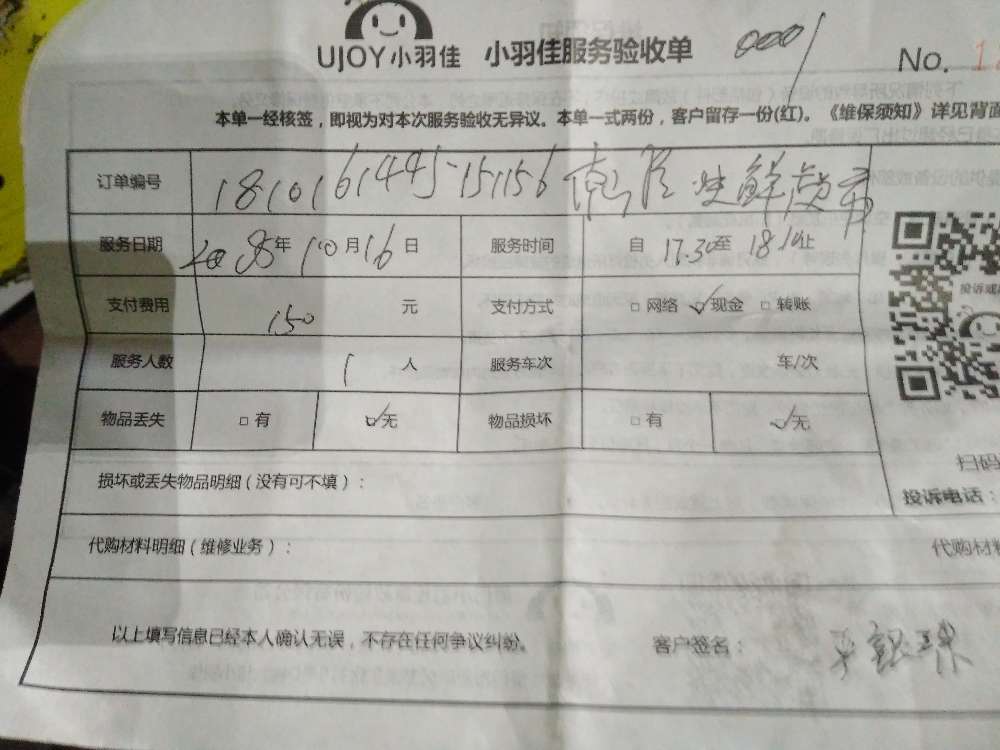 UJOY小羽佳 小羽佳服务验收单 0001 No. 1
本单一经核签，即视为对本次服务验收无异议。本单一式两份，客户留存一份(红)。《维保须知》详见背面
订单编号 181016144515156
服务日期 年10月16日 服务时间 自17.30至18.10止
支付费用 150 元 支付方式 □网络 ☑现金 □转账
服务人数 1 人 服务车次 车/次
物品丢失 □有 ☑无 物品损坏 □有 ☑无
损坏或丢失物品明细(没有可不填)：
扫码
投诉电话：
代购材料明细(维修业务)： 代购材料
以上填写信息已经本人确认无误，不存在任何争议纠纷。 客户签名：